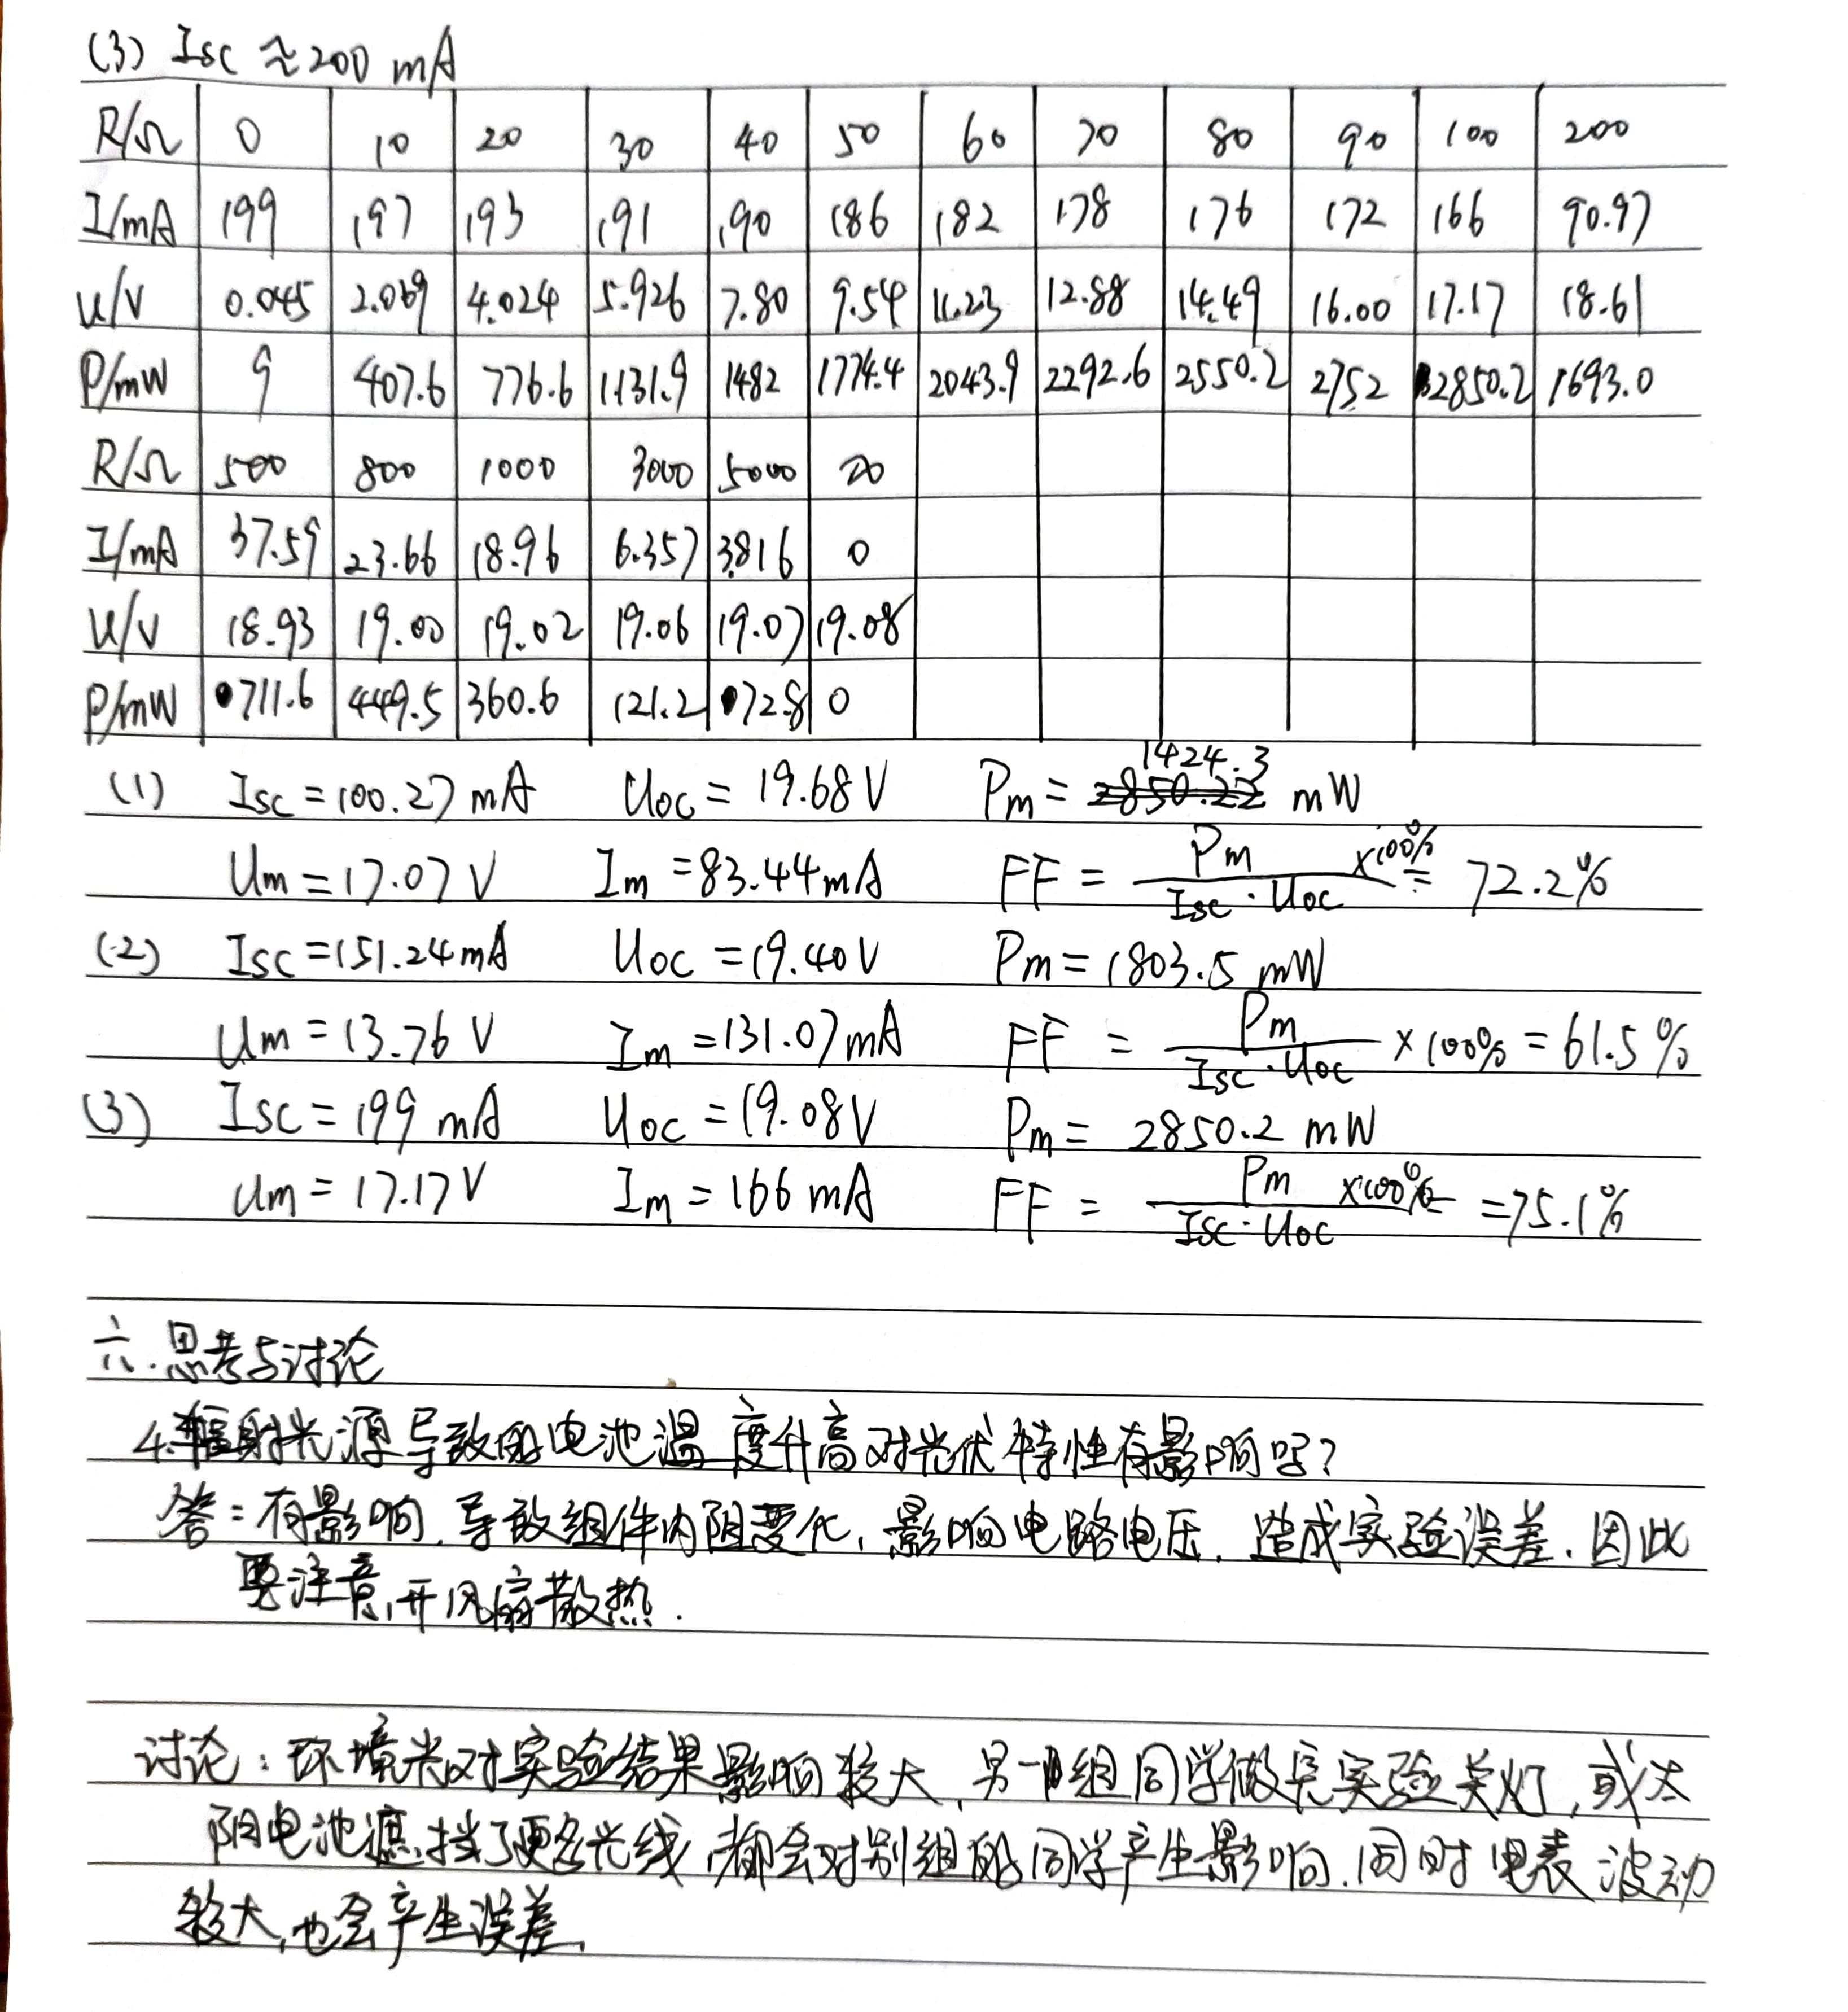 (3) Isc ≈ 200 mA
R/Ω 0 10 20 30 40 50 60 70 80 90 100 200
I/mA 199 197 193 191 190 186 182 178 176 172 166 90.97
U/V 0.045 2.069 4.024 5.926 7.80 9.54 11.23 12.88 14.49 16.00 17.17 18.61
P/mW 9 407.6 776.6 1131.9 1482 1774.4 2043.9 2292.6 2550.2 2752 2850.2 1693.0
R/Ω 500 800 1000 3000 5000 ∞
I/mA 37.59 23.66 18.96 6.357 3.816 0
U/V 18.93 19.00 19.02 19.06 19.07 19.08
P/mW 711.6 449.5 360.6 121.2 72.8 0
(1) Isc = 100.27 mA Uoc = 19.68 V Pm = 1424.3 mW
Um = 17.07 V Im = 83.44 mA FF = Pm/(Isc·Uoc) ×100% = 72.2%
(2) Isc = 151.24 mA Uoc = 19.40 V Pm = 1803.5 mW
Um = 13.76 V Im = 131.07 mA FF = Pm/(Isc·Uoc) ×100% = 61.5%
(3) Isc = 199 mA Uoc = 19.08 V Pm = 2850.2 mW
Um = 17.17 V Im = 166 mA FF = Pm/(Isc·Uoc) ×100% = 75.1%
六.思考与讨论
4.辐射光源导致的电池温度升高对光伏特性有影响吗?
答:有影响,导致组件内阻变化,影响电路电压,造成实验误差,因此
要注意,开风扇散热.
讨论:环境光对实验结果影响较大,另一组同学做完实验关灯,或太
阳电池遮挡了更多光线,都会对别组的同学产生影响.同时电表波动
较大,也会产生误差.